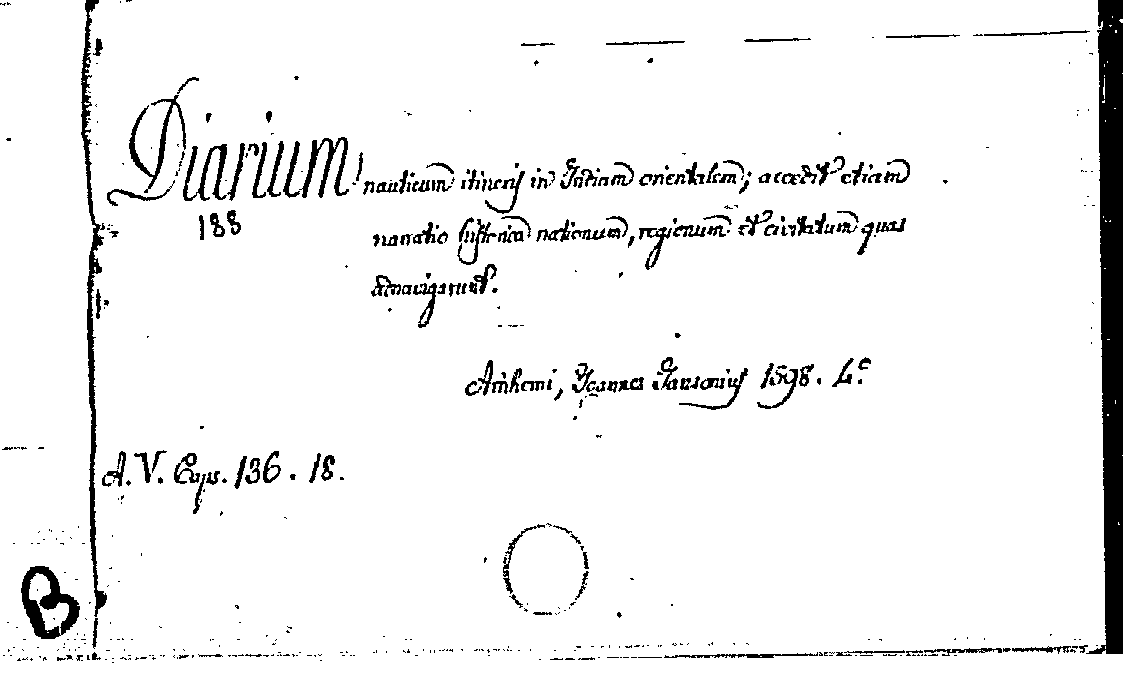 Diarium nauticum itineris in Indiam orientalem; accedit etiam
188
narratio historica nationum, regionum et civitatum quas
adnavigarunt.
Arnhemi, Joannes Jansonius 1598. 4.º
A. V. Caps. 136. 18.
B